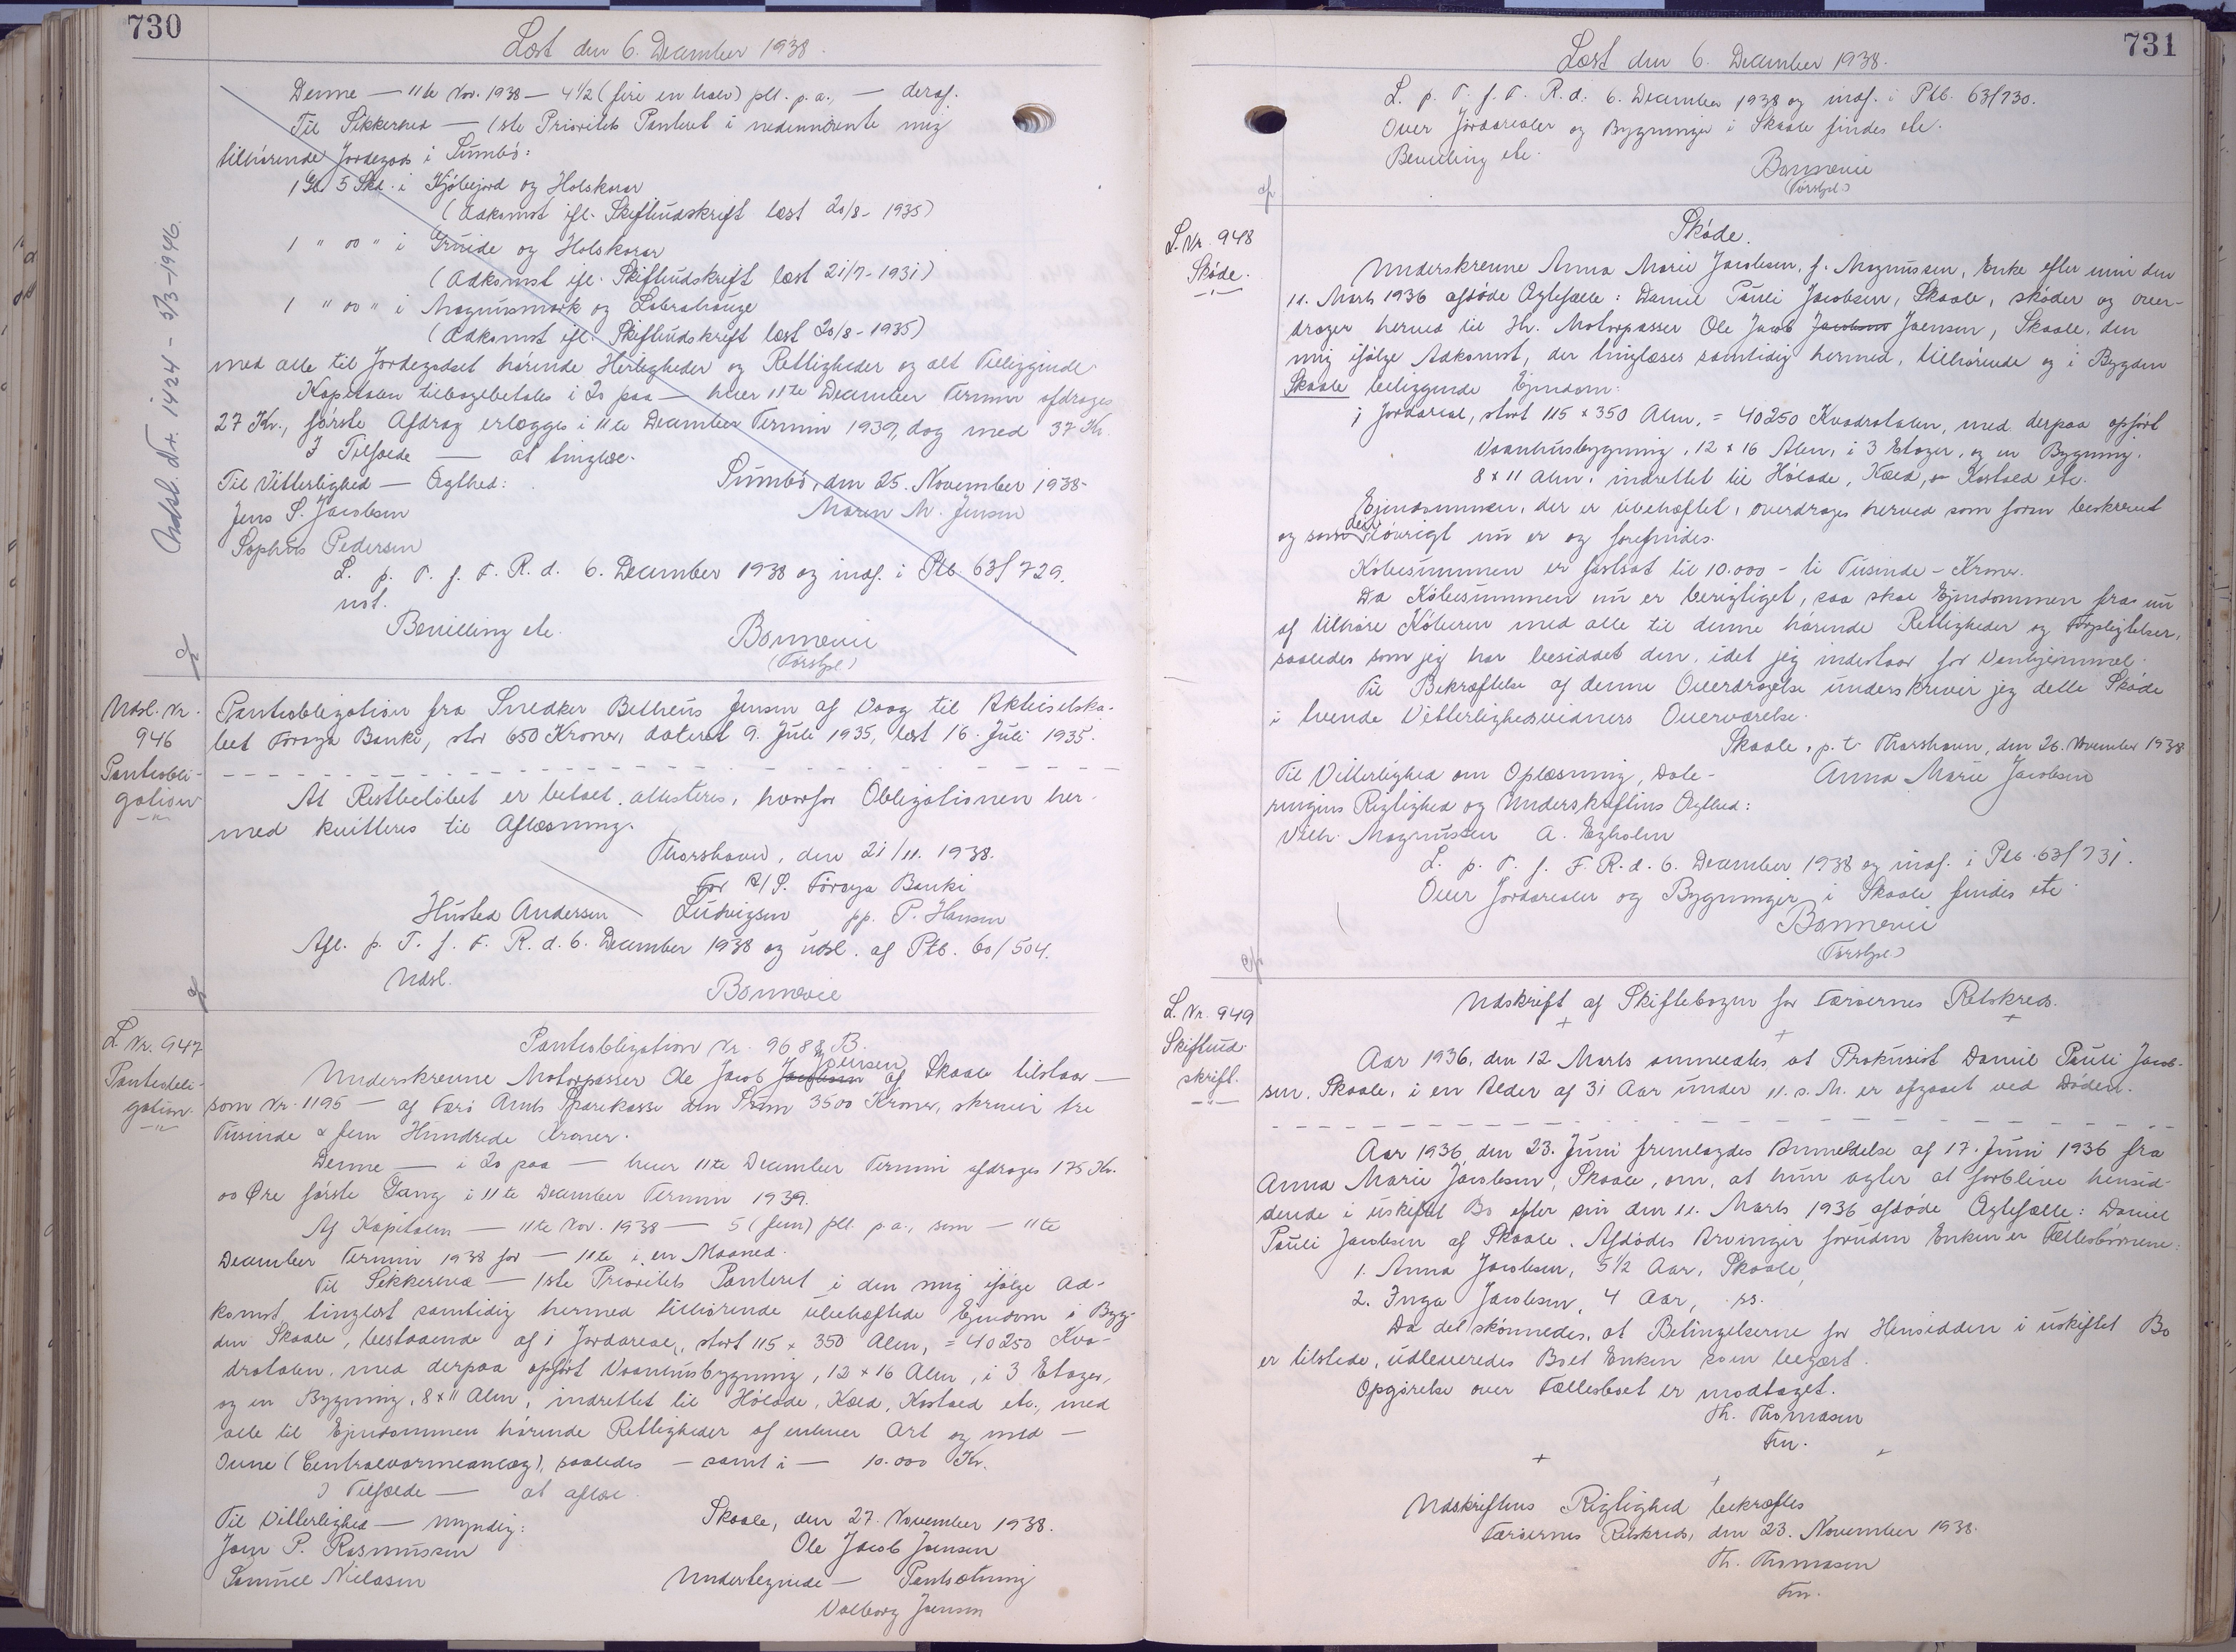 730
Læst den 6. December 1938.
Denne — 11te Nov. 1938 — 4½ (fire en halv) pCt. p. a., — deraf.
Til Sikkerhed — 1ste Prioritets Panteret i nedennævnte mig
tilhørende Jordegods i Sumbø:
1 Gl. 5 Skd. i Kjøbejord og Holskorar
(Adkomst ifl. Skifteudskrift læst 20/8 - 1935)
1 " 00 " i Gruide og Holskorar
(Adkomst ifl. Skifteudskrift læst 21/7 - 1931)
1 " 00 " i Magnusmark og Labrahauge
(Adkomst ifl. Skifteudskrift læst 20/8 - 1935)
med alle til Jordegodset hørende Herligheder og Rettigheder og alt Tilliggende
Kapitalen tilbagebetales i 20 paa — hver 11te December Termin afdrages
27 Kr., første Afdrag erlægges i 11te December Termin 1939, dog med 37 Kr.
I Tilfælde — at tinglæse.
Til Vitterlighed — Ægthed: Sumbø, den 25. November 1938.
Jens S. Jacobsen Maren M. Jensen
Sophus Pedersen
L. p. T. f. F. R. d. 6. December 1938 og indf. i Ptb. 63/729.
not.
Bevilling etc. Bonnevie
(Forstpl.)
Udsl. Nr. 1424 - 5/3 - 1946.
Udsl. Nr.
946
Panteobli-
gation
Panteobligation fra Snedker Betheus Jensen af Vaag til Aktieselska-
bet Føroya Banki, stor 650 Kroner, dateret 9. Juli 1935, læst 16. Juli 1935.
At Restbeløbet er betalt, attesteres, hvorfor Obligationen her-
med kvitteres til Aflæsning.
Thorshavn, den 21/11. 1938.
For A/S. Føroya Banki
Husted Andersen Ludvigsen pp. P. Hansen
Afl. p. T. f. F. R. d. 6. December 1938 og udsl. af Ptb. 60/504.
Udsl. Bonnevie
L. Nr. 947
Panteobli-
gation
Panteobligation Nr. 9688 B.
Underskrevne Motorpasser Ole Jacob Jacobsen Joensen af Skaale tilstaar —
som Nr. 1195 — af Færø Amts Sparekasse den Sum 3500 Kroner, skriver tre
Tusinde & fem Hundrede Kroner.
Denne — i 20 paa — hver 11te December Termin afdrages 175 Kr.
00 Øre første Gang i 11te December Termin 1939.
Af Kapitalen — 11te Nov. 1938 — 5 (fem) pCt. p. a., som — 11te
December Termin 1938 for — 11te i en Maaned.
Til Sikkerhed — 1ste Prioritets Panteret i den mig ifølge Ad-
komst tinglæst samtidig hermed tilhørende ubehæftede Ejendom i Byg-
den Skaale, bestaaende af 1 Jordareal, stort 115 × 350 Alen, = 40250 Kva-
dratalen, med derpaa opført Vaanhusbygning, 12 × 16 Alen, i 3 Etager,
og en Bygning, 8 × 11 Alen, indrettet til Hølade, Kæld, Kostald etc., med
alle til Ejendommen hørende Rettigheder af enhver Art og med —
Ovne (Centralvarmeanlæg), saaledes — samt i — 10.000 Kr.
I Tilfælde — at aflæse.
Til Vitterlighed — myndig: Skaale, den 27. November 1938.
Joen P. Rasmussen Ole Jacob Joensen
Samuel Nielasen Undertegnede — Pantsætning
Valborg Joensen
731
Læst den 6. December 1938.
L. p. T. f. F. R. d. 6. December 1938 og indf. i Ptb. 63/730.
Over Jordarealer og Bygninger i Skaale findes etc.
Bevilling etc.
Bonnevie
(Forstpl.)
L. Nr. 948
Skøde.
Skøde.
Underskrevne Anna Marie Jacobsen, f. Magnussen, Enke efter min den
11. Marts 1936 afdøde Ægtefælle: Daniel Pauli Jacobsen, Skaale, skøder og over-
drager herved til Hr. Motorpasser Ole Jacob Jacobsen Joensen, Skaale, den
mig ifølge Adkomst, der tinglæses samtidig hermed, tilhørende og i Bygden
Skaale beliggende Ejendom:
1 Jordareal, stort 115 × 350 Alen, = 40250 Kvadratalen, med derpaa opført
Vaanhusbygning, 12 × 16 Alen, i 3 Etager, og en Bygning,
8 × 11 Alen, indrettet til Hølade, Kæld, Kostald etc.
Ejendommen, der er ubehæftet, overdrages herved som foran beskrevet
og som den iøvrigt nu er og forefindes.
Købesummen er fastsat til 10.000 - ti Tusinde - Kroner.
Da Købesummen nu er berigtiget, saa skal Ejendommen fra nu
af tilhøre Køberen med alle til denne hørende Rettigheder og Forpligtelser,
saaledes som jeg har besiddet den, idet jeg indestaar for Vanhjemmel.
Til Bekræftelse af denne Overdragelse underskriver jeg dette Skøde
i tvende Vitterlighedsvidners Overværelse.
Skaale, p. t. Thorshavn, den 26. November 1938
Til Vitterlighed om Oplæsning, Date- Anna Marie Jacobsen
ringens Rigtighed og Underskriftens Ægthed:
Vilh. Magnussen A. Egholm
L. p. T. f. F. R. d. 6. December 1938 og indf. i Ptb. 63/731.
Over Jordarealer og Bygninger i Skaale findes etc.
Bonnevie
(Forstpl.)
L. Nr. 949
Skifteud-
skrift.
Udskrift af Skiftebogen for Færøernes Retskreds.
Aar 1936, den 12 Marts anmeldtes, at Prokurist Daniel Pauli Jacob-
sen, Skaale, i en Alder af 31 Aar under 11. s. M. er afgaaet ved Døden.
Aar 1936, den 23. Juni fremlagdes Anmeldelse af 17. Juni 1936 fra
Anna Marie Jacobsen, Skaale, om, at hun agter at forblive hensid-
dende i uskiftet Bo efter sin den 11. Marts 1936 afdøde Ægtefælle: Daniel
Pauli Jacobsen af Skaale. Afdødes Arvinger foruden Enken er Fællesbørnene:
1. Anna Jacobsen, 5½ Aar, Skaale,
2. Inga Jacobsen, 4 Aar, ss.
Da det skønnedes, at Betingelserne for Hensidden i uskiftet Bo
er tilstede, udleveredes Boet Enken som begært.
Opgørelse over Fællesboet er modtaget.
Th. Thomasen
Fm.
Udskriftens Rigtighed bekræftes
Færøernes Retskreds, den 23. November 1938.
Th. Thomasen
Fm.